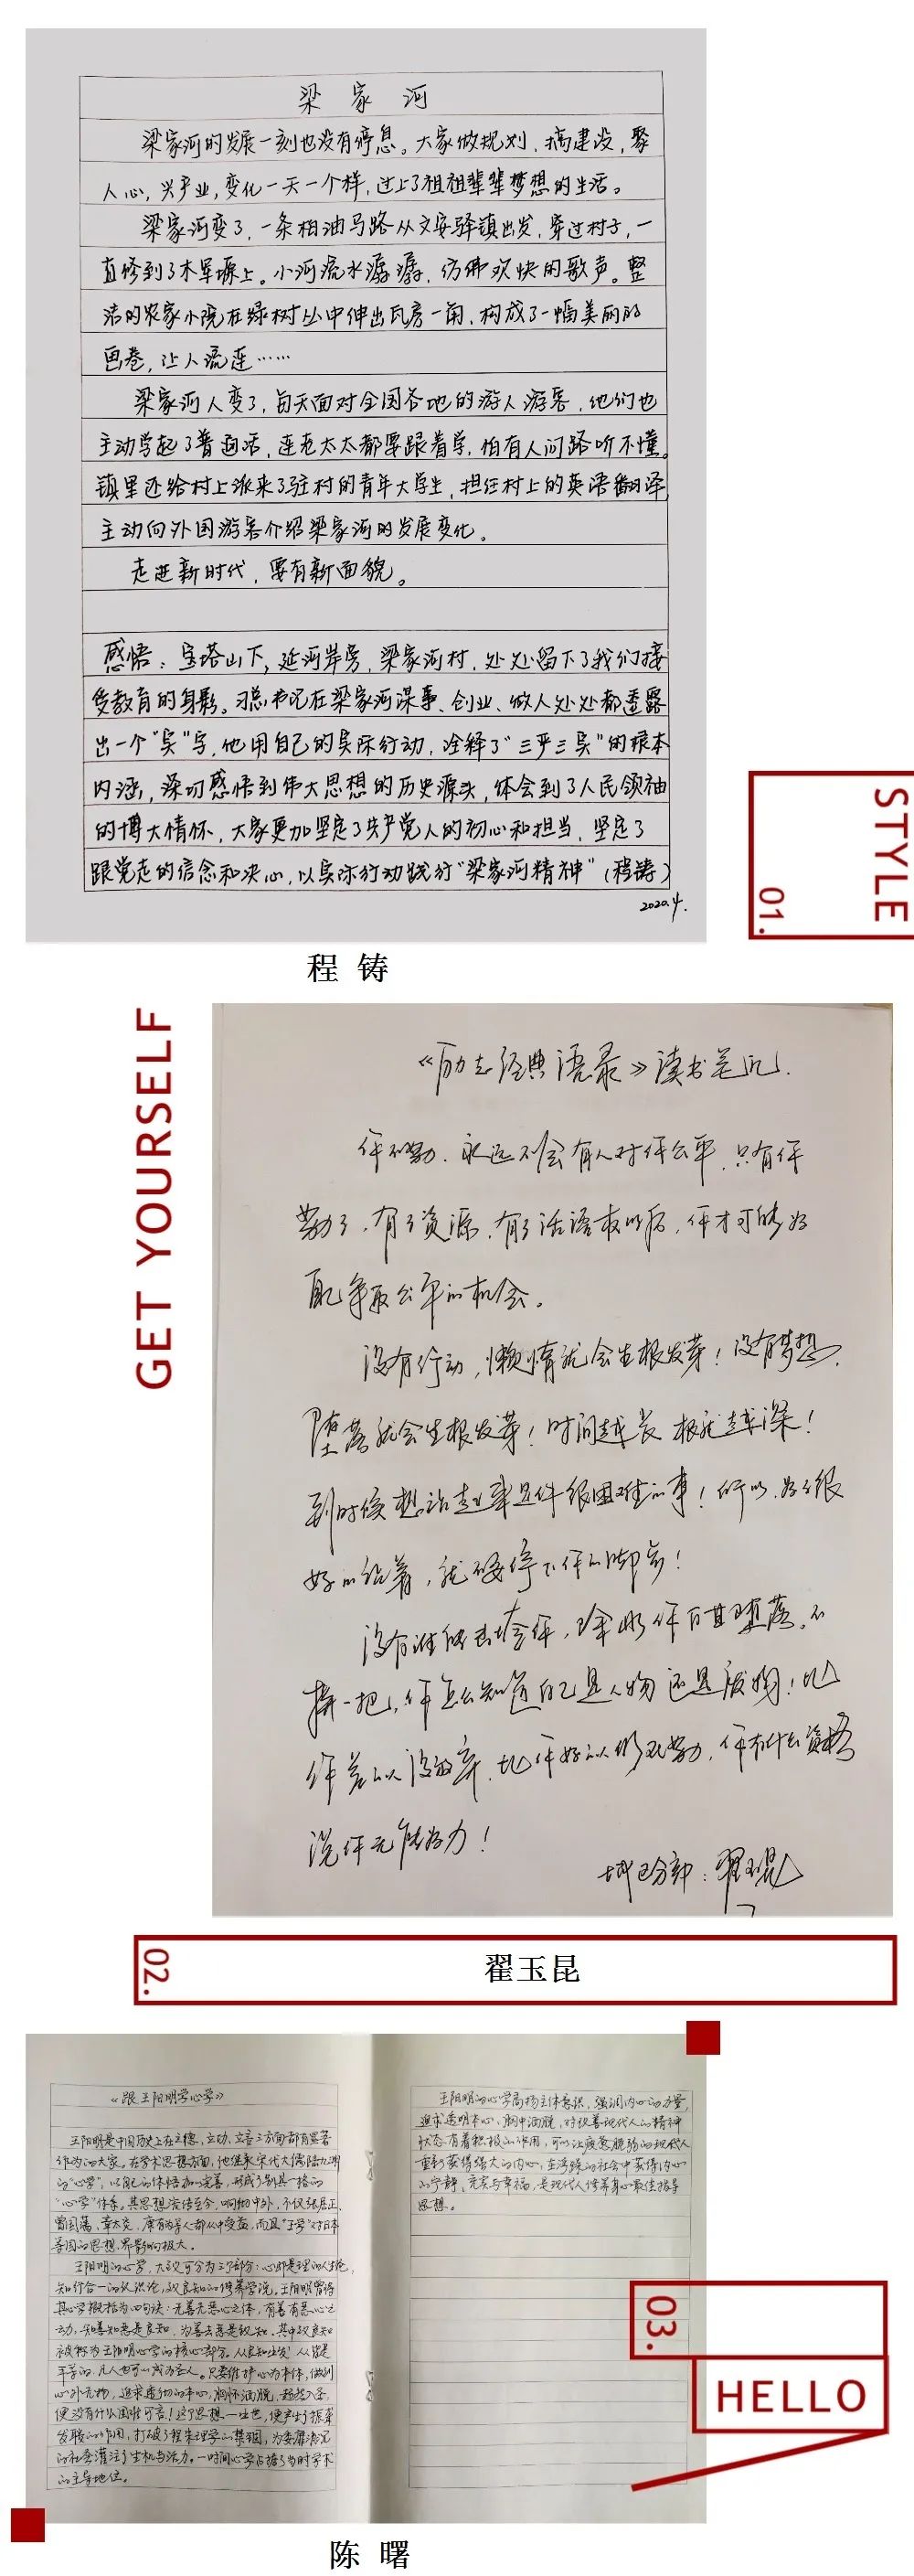 梁家河
梁家河的发展一刻也没有停息。大家做规划，搞建设，聚
人心，兴产业，变化一天一个样，过上了祖祖辈辈梦想的生活。
梁家河变了，一条柏油马路从文安驿镇出发，穿过村子，一
直修到了木军塬上。小河流水潺潺，仿佛欢快的歌声。整
洁的农家小院在绿树丛中伸出瓦房一角，构成了一幅美丽的
画卷，让人流连……
梁家河人变了，每天面对全国各地的游人游客，他们也
主动学起了普通话，连老太太都要跟着学，怕有人问路听不懂。
镇里还给村上派来了驻村的青年大学生，担任村上的英语翻译
主动向外国游客介绍梁家河的发展变化。
走进新时代，要有新面貌。
感悟：宝塔山下，延河岸旁，梁家河村，处处留下了我们接
受教育的身影。习总书记在梁家河谋事、创业、做人处处都透露
出一个“实”字，他用自己的实际行动，诠释了“三严三实”的根本
内涵，深切感悟到伟大思想的历史源头，体会到了人民领袖
的博大情怀，大家更加坚定了共产党人的初心和担当，坚定了
跟党走的信念和决心，以实际行动践行“梁家河精神”（程铸）
2020.4.
STYLE
01.
程 铸
GET YOURSELF
《励志经典语录》读书笔记.
你不努力，永远不会有人对你公平，只有你
努力了，有了资源，有了话语权以后，你才可能为
自己争取公平的机会。
没有行动，懒惰就会生根发芽！没有梦想，
堕落就会生根发芽！时间越长 根就越深！
到时候想站起来是件很困难的事！所以，为了很
好的活着，就不要停下你的脚步！
没有谁能击垮你，除非你自甘堕落。不
拼一把，你怎么知道自己是人物还是废物！比
你差的人没放弃，比你好的人仍在努力，你有什么资格
说你无能为力！
翟玉昆
02.
翟玉昆
《跟王阳明学心学》
王阳明是中国历史上在立德、立功、立言三方面都有显著
作为的大家。在学术思想方面，他继承宋代大儒陆九渊
的“心学”，以自己的体悟加以完善，形成了别具一格的
“心学”体系。其思想流传至今，响彻中外，不仅张居正、
曾国藩、章太炎、康有为等人都从中受益，而且“王学”对日本
等国的思想界影响极大。
王阳明的心学，大致可分为三个部分：心即是理的人生论，
知行合一的认识论，致良知的修养学说。王阳明曾将
其心学概括为四句诀：无善无恶心之体，有善有恶心之
动，知善知恶是良知，为善去恶是致知。其中致良知
被称为王阳明心学的核心部分。从良知出发，人皆是
平等的，凡人也可以成为圣人。只要维护心为本体，做到
心外无物，追求透彻的本心，胸怀洒脱，超然入圣，
便没有什么困难可言！这个思想一出世，便产生了振聋
发聩的作用，打破了程朱理学的禁锢，为委靡
的社会灌注了生机与活力。一时间心学占据了当时学术
的主导地位。
王阳明的心学高扬主体意识，强调内心的力量，
追求透明本心，胸中洒脱，对改善现代人的精神
状态有着积极的作用，可以让疲惫脆弱的现代人
重新获得强大的内心，在浮躁的社会中获得内心
的宁静、充实与幸福，是现代人修养身心最佳指导
思想。
03.
HELLO
陈 曙